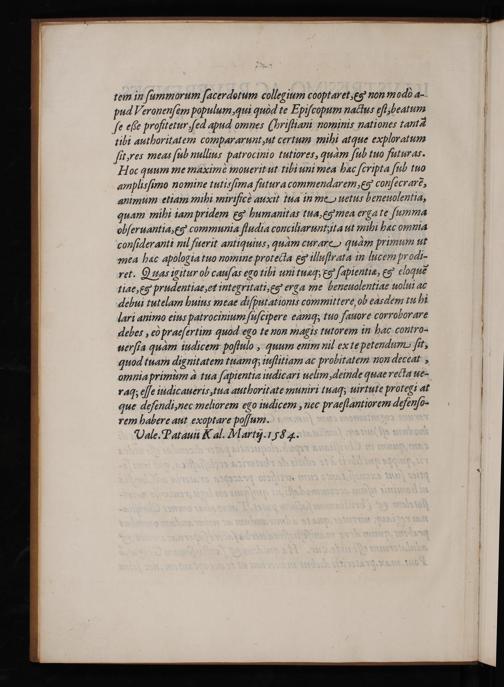 tem in summorum sacerdotum collegium cooptaret, & non modò a-
pud Veronensem populum, qui quòd te Episcopum nactus est, beatum
se esse profitetur, sed apud omnes Christiani nominis nationes tantā
tibi authoritatem compararunt, ut certum mihi atque exploratum
sit, res meas sub nullius patrocinio tutiores, quàm sub tuo futuras.
Hoc quum me maximè mouerit ut tibi uni mea hæc scripta sub tuo
amplissimo nomine tutissima futura commendarem, & consecrarē,
animum etiam mihi mirificè auxit tua in me uetus beneuolentia,
quam mihi iampridem & humanitas tua, & mea erga te summa
obseruantia, & communia studia conciliarunt; ita ut mihi hac omnia
consideranti nil fuerit antiquius, quàm curare quàm primum ut
mea hæc apologia tuo nomine protecta & illustrata in lucem prodi-
ret. Quas igitur ob causas ego tibi uni tuæq; & sapientiæ, & eloquē
tiae, & prudentiae, et integritati, & erga me beneuolentiae uolui ac
debui tutelam huius meae disputationis committere, ob easdem tu hi
lari animo eius patrocinium suscipere eamq; tuo fauore corroborare
debes, eò praesertim quòd ego te non magis tutorem in hac contro-
uersia quàm iudicem postulo, quum enim nil ex te petendum sit,
quod tuam dignitatem tuamq; iustitiam ac probitatem non deceat,
omnia primùm à tua sapientia iudicari uelim, deinde quae recta ue-
raq; esse iudicaueris, tua authoritate muniri tuaq; uirtute protegi at
que defendi, nec meliorem ego iudicem, nec praestantiorem defenso-
rem habere aut exoptare possum.
Vale. Patauii Kal. Martij. 1584.